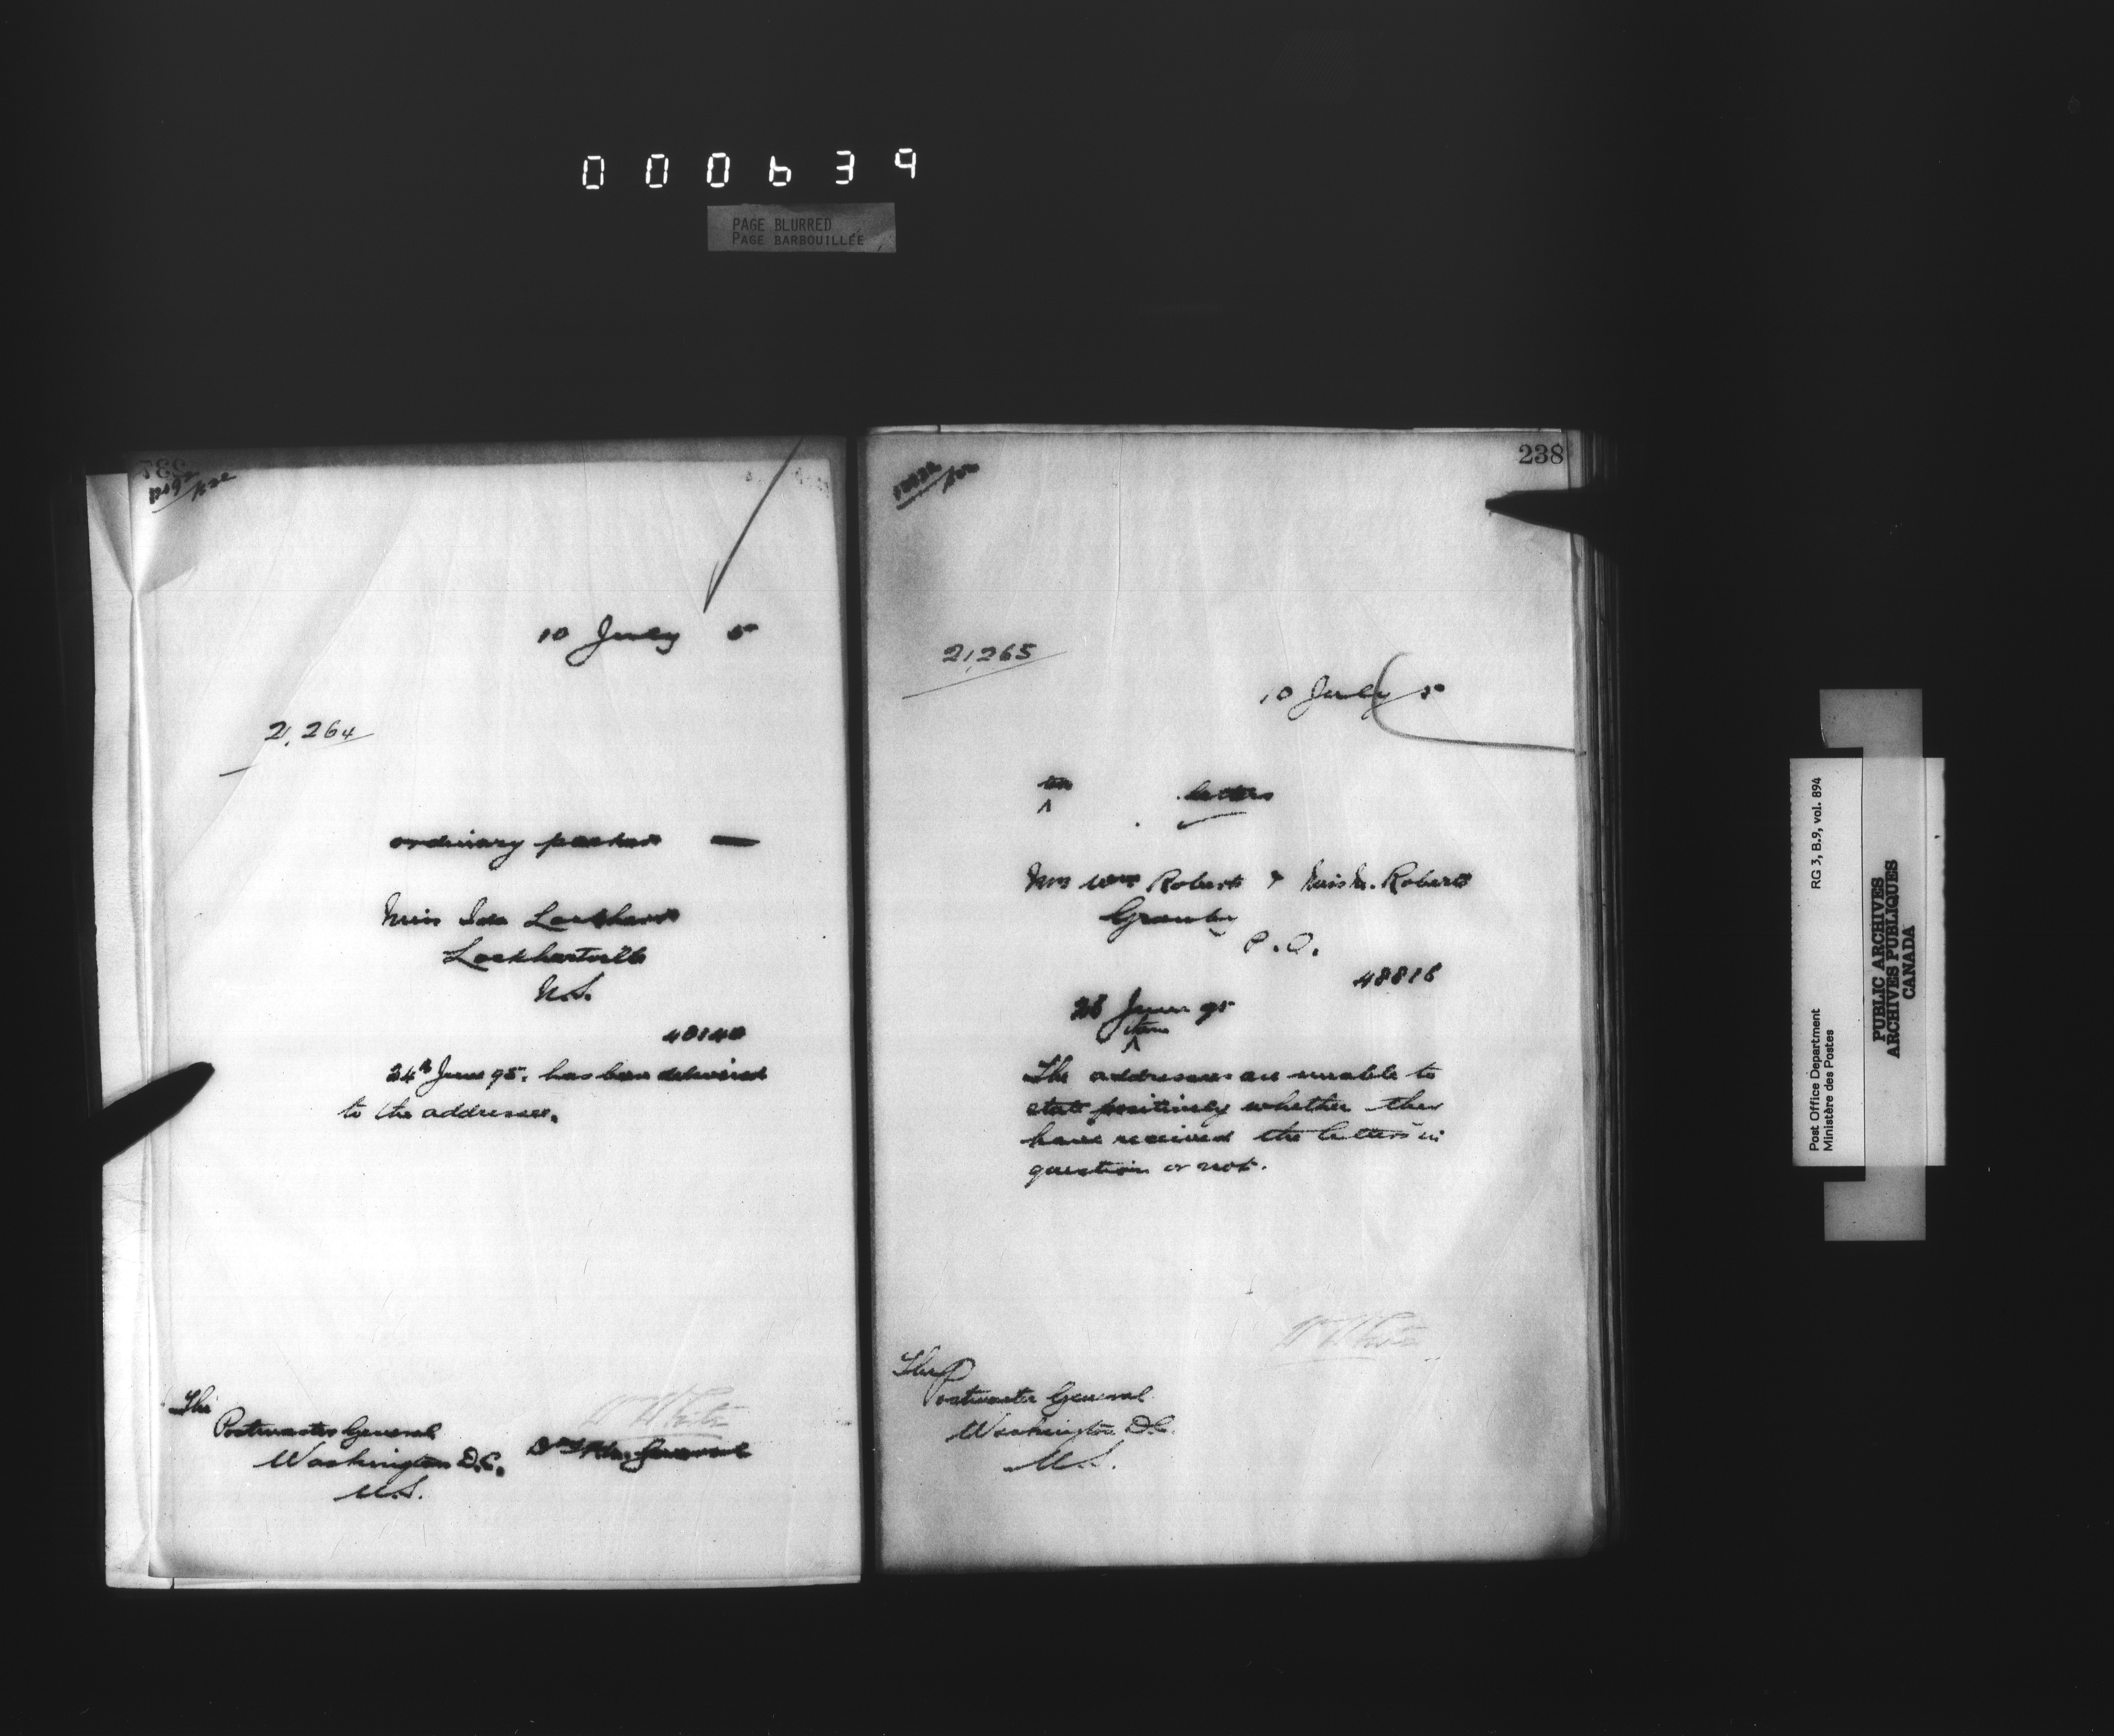 000639
PAGE BLURRED
PAGE BARBOUILLÉE
237
10 July 5
21,264
ordinary packet —
Miss Ida Lockhart
Lockhartville
N.S.
40140
24th June 95. has been delivered
to the addressee.
The
Postmaster General
Washington D.C.
U.S.
W White
General
238
21,265
10 July 5
letters
Mrs Wm Roberts & Miss M. Roberts
Granby
P.Q.
48816
June 95
The addressees are unable to
state positively whether they
have received the letters in
question or not.
W White
The
Postmaster General
Washington D.C.
U.S.
Post Office Department RG 3, B.9, vol. 894
Ministère des Postes
PUBLIC ARCHIVES
ARCHIVES PUBLIQUES
CANADA